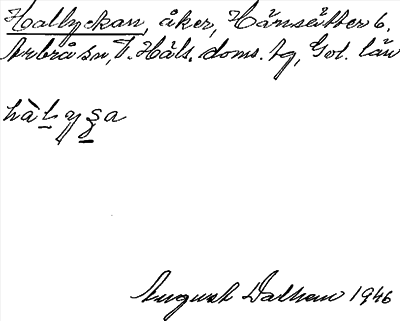 Hallyckan, åker, Hånsätter 6,
Arbrå sn, V. Häls. doms. tg, Gvl. län
hàlyga
August Dalhem 1946